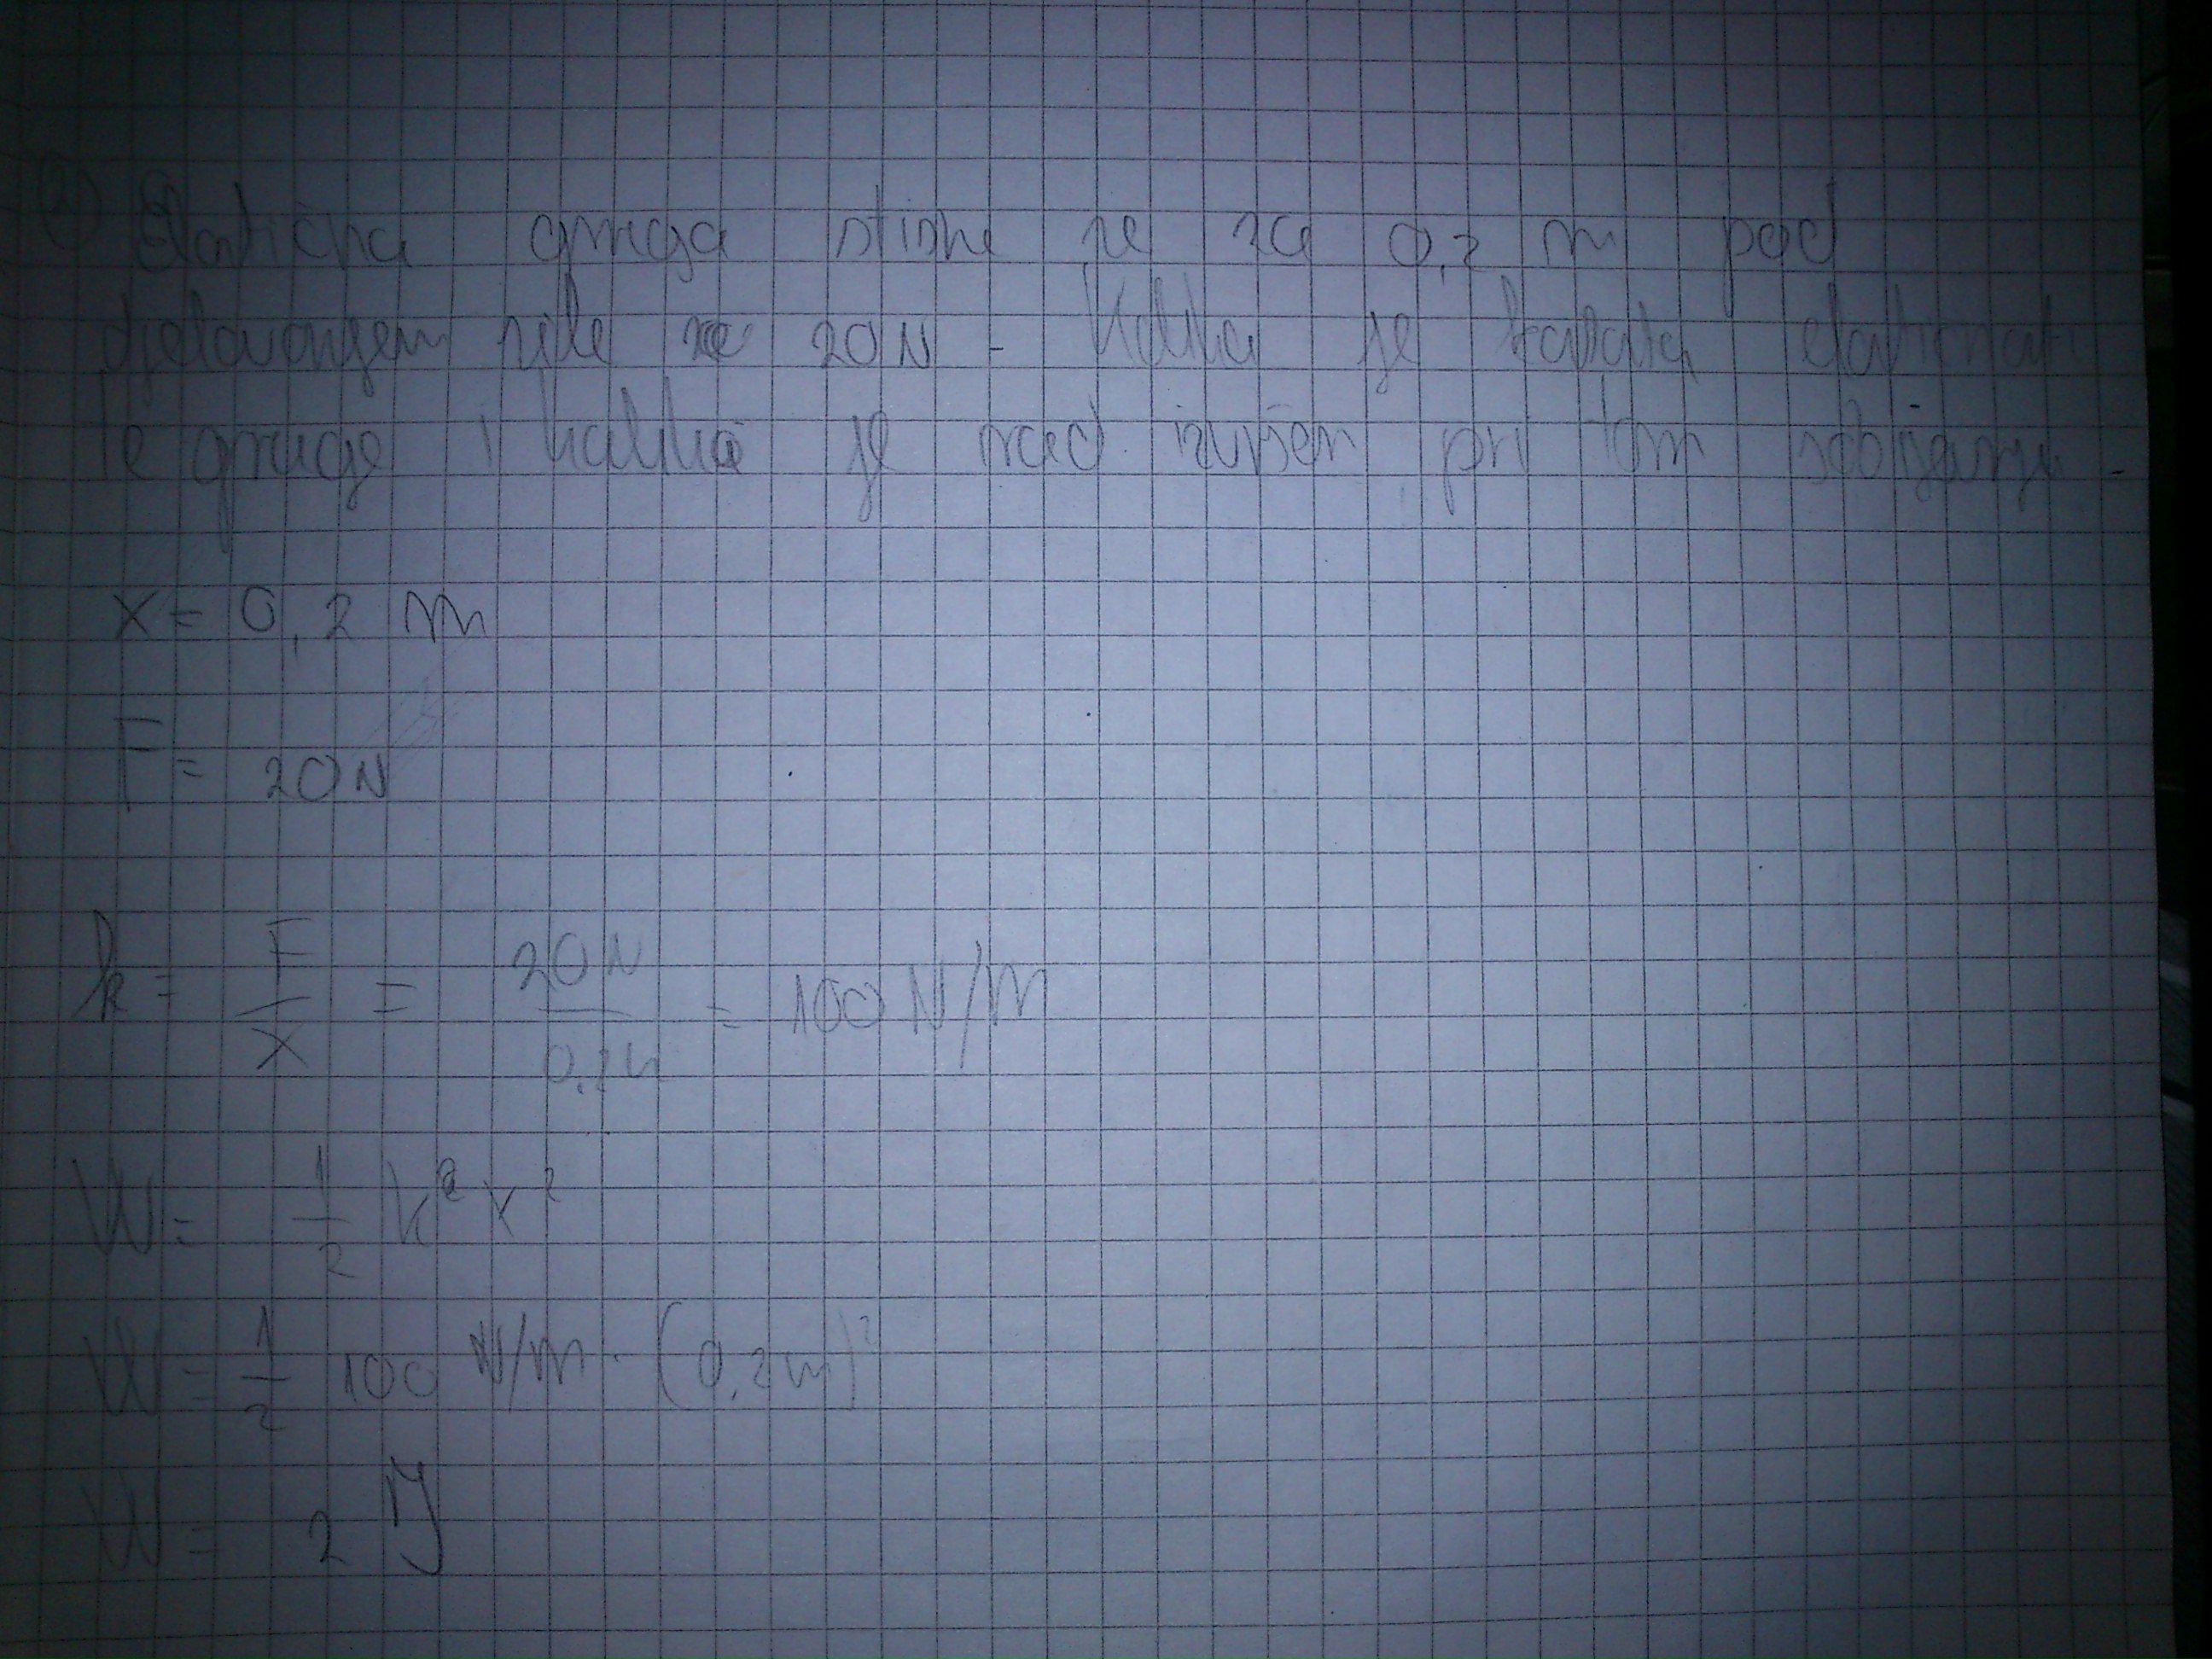 Elastična opruga stisne se za 0,2 m pod
djelovanjem sile 20 N. Kolika je elastičnosti
te opruge i koliki je rad izvršen pri tom sabijanju.
x = 0,2 m
F = 20 N
k = F/x = 20N/0,2m = 100 N/m
W = 1/2 k x²
W = 1/2 100 N/m · (0,2m)²
W = 2 J